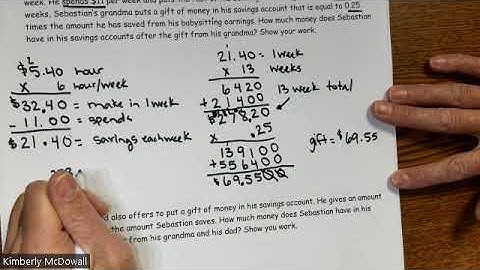 week. He spends $11 per week and puts the rest
weeks, Sebastian's grandma puts a gift of money in his savings account that is equal to 0.25
times the amount he has saved from his babysitting earnings. How much money does Sebastian
have in his savings accounts after the gift from his grandma? Show your work.
2
$5.40 hour
x 6 hour/week
$32.40 = make in 1 week
- 11.00 = spends
$21.40 = savings each week
1
21.40 = 1 week
x 13 weeks
6420
+ 21400
$278.20
13 week total
x .25
139100
+ 556400
$69.5500
gift = $69.55
278
d also offers to put a gift of money in his savings account. He gives an amount
the amount Sebastian saves. How much money does Sebastian have in his
from his grandma and his dad? Show you work.
Kimberly McDowall